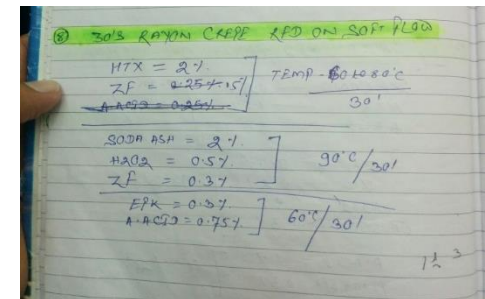 ⑧ 30'S RAYON CREPE RFD ON SOFT FLOW
HTX = 2%
ZF = 0.25% .5%
A.ACID = 0.25%
TEMP - 60 to 80°C
30'
SODA ASH = 2%
H2O2 = 0.5%
ZF = 0.3%
90°C/30'
EPK = 0.3%
A.ACID = 0.75%
60°C/30'